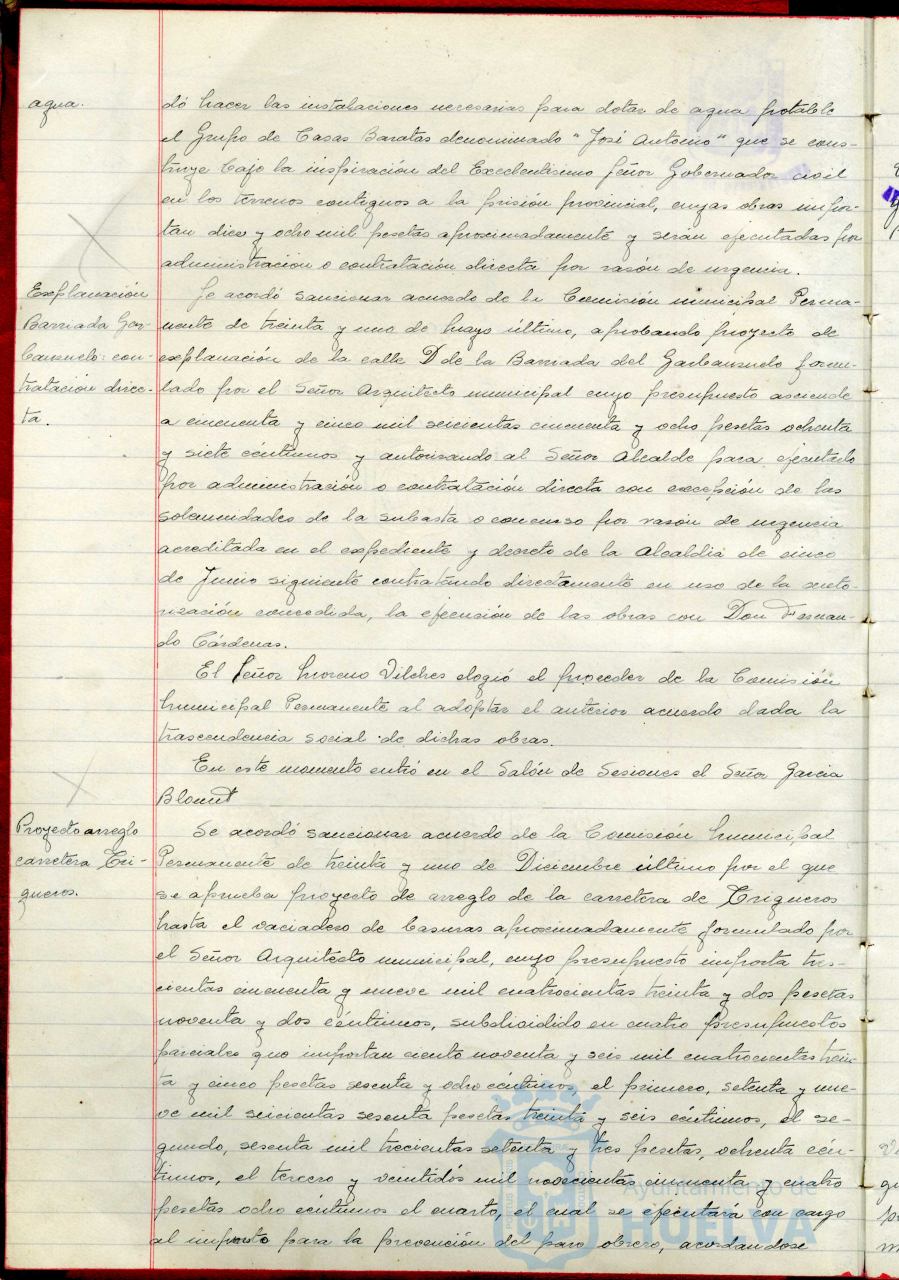 agua.
dó hacer las instalaciones necesarias para dotar de agua potable
el Grupo de Casas Baratas denominado "José Antonio" que se cons-
truye bajo la inspiración del Excelentísimo Señor Gobernador civil
en los terrenos contiguos a la prisión provincial, cuyas obras impor-
tan diez y ocho mil pesetas aproximadamente y serán ejecutadas por
administración o contratación directa por razón de urgencia.
Explanación
Barriada Gar-
banzuelo: con-
tratación direc-
ta.
Se acordó sancionar acuerdo de la Comisión municipal Perma-
nente de treinta y uno de Mayo último, aprobando proyecto de
explanación de la calle D de la Barriada del Garbanzuelo formu-
lado por el Señor Arquitecto municipal cuyo presupuesto asciende
a cincuenta y cinco mil seiscientas cincuenta y ocho pesetas ochenta
y siete céntimos y autorizando al Señor Alcalde para ejecutarlo
por administración o contratación directa con excepción de las
solemnidades de la subasta o concurso por razón de urgencia
acreditada en el expediente y decreto de la Alcaldía de cinco
de Junio siguiente contratando directamente en uso de la auto-
rización concedida, la ejecución de las obras con Don Fernan-
do Cárdenas.
El Señor Moreno Vilches elogió el proceder de la Comisión
Municipal Permanente al adoptar el anterior acuerdo dada la
trascendencia social de dichas obras.
En este momento entró en el Salón de Sesiones el Señor Garcia
Blount
Proyecto arreglo
carretera Tri-
gueros.
Se acordó sancionar acuerdo de la Comisión Municipal
Permanente de treinta y uno de Diciembre último por el que
se aprueba proyecto de arreglo de la carretera de Trigueros
hasta el vaciadero de basuras aproximadamente formulado por
el Señor Arquitecto municipal, cuyo presupuesto importa tres-
cientas cincuenta y nueve mil cuatrocientas treinta y dos pesetas
noventa y dos céntimos, subdividido en cuatro presupuestos
parciales que importan ciento noventa y seis mil cuatrocientas trein-
ta y cinco pesetas sesenta y ocho céntimos, el primero, setenta y nue-
ve mil seicientas sesenta pesetas treinta y seis céntimos, el se-
gundo, sesenta mil trecientas setenta y tres pesetas, ochenta cén-
timos, el tercero y veintidós mil novecientas cincuenta y cuatro
pesetas ocho céntimos el cuarto, el cual se ejecutará con cargo
al impuesto para la prevención del paro obrero, acordándose
Ayuntamiento de
HUELVA